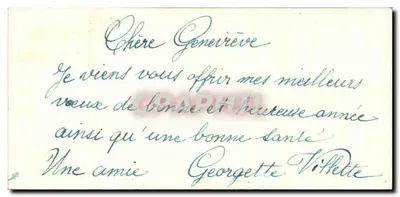 Chère Geneviève
Je viens vous offrir mes meilleurs
vœux de bonne et heureuse année
ainsi qu'une bonne santé
Une amie Georgette Villette